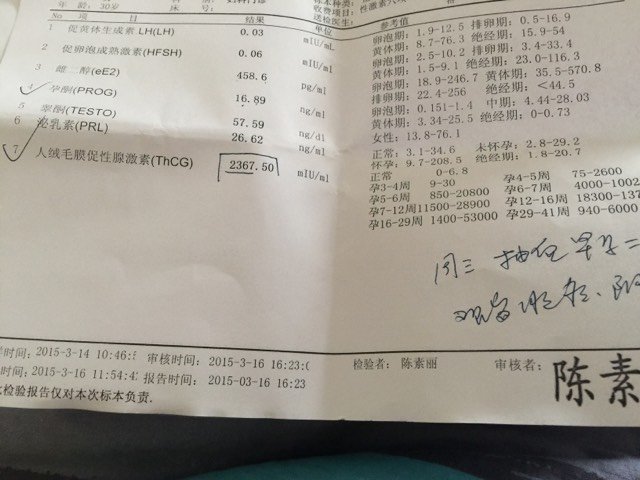 年 龄: 30岁
妇科门诊
床 号:
标本种类:
收费项目:
送检医生:
性激素六项
No 项 目 结果 单位 参考值
1 促黄体生成素LH(LH) 0.03 mIU/mL 卵泡期: 1.9-12.5 排卵期: 0.5-16.9
黄体期: 8.7-76.3 绝经期: 15.9-54
2 促卵泡成熟激素(HFSH) 0.06 mIU/ml 卵泡期: 2.5-10.2 排卵期: 3.4-33.4
黄体期: 1.5-9.1 绝经期: 23.0-116.3
3 雌二醇(eE2) 458.6 pg/ml 卵泡期: 18.9-246.7 黄体期: 35.5-570.8
排卵期: 22.4-256 绝经期: <44.5
孕酮(PROG) 16.89 ng/ml 卵泡期: 0.151-1.4 中期: 4.44-28.03
黄体期: 3.34-25.5 绝经期: 0-0.73
5 睾酮(TESTO) 57.59 ng/dl 女性: 13.8-76.1
6 泌乳素(PRL) 26.62 ng/ml 正常: 3.1-34.6 未怀孕: 2.8-29.2
怀孕: 9.7-208.5 绝经期: 1.8-20.7
7 人绒毛膜促性腺激素(ThCG) 2367.50 mIU/ml 正常 0-6.8
孕3-4周 9-30 孕4-5周 75-2600
孕5-6周 850-20800 孕6-7周 4000-1002
孕7-12周11500-28900 孕12-16周 18300-137
孕16-29周 1400-53000 孕29-41周 940-6000
周三 抽血 早孕二
时间: 2015-3-14 10:46: 审核时间: 2015-3-16 16:23:0 检验者: 陈素丽 审核者: 陈素
时间: 2015-3-16 11:54:4 报告时间: 2015-03-16 16:23
检验报告仅对本次标本负责.